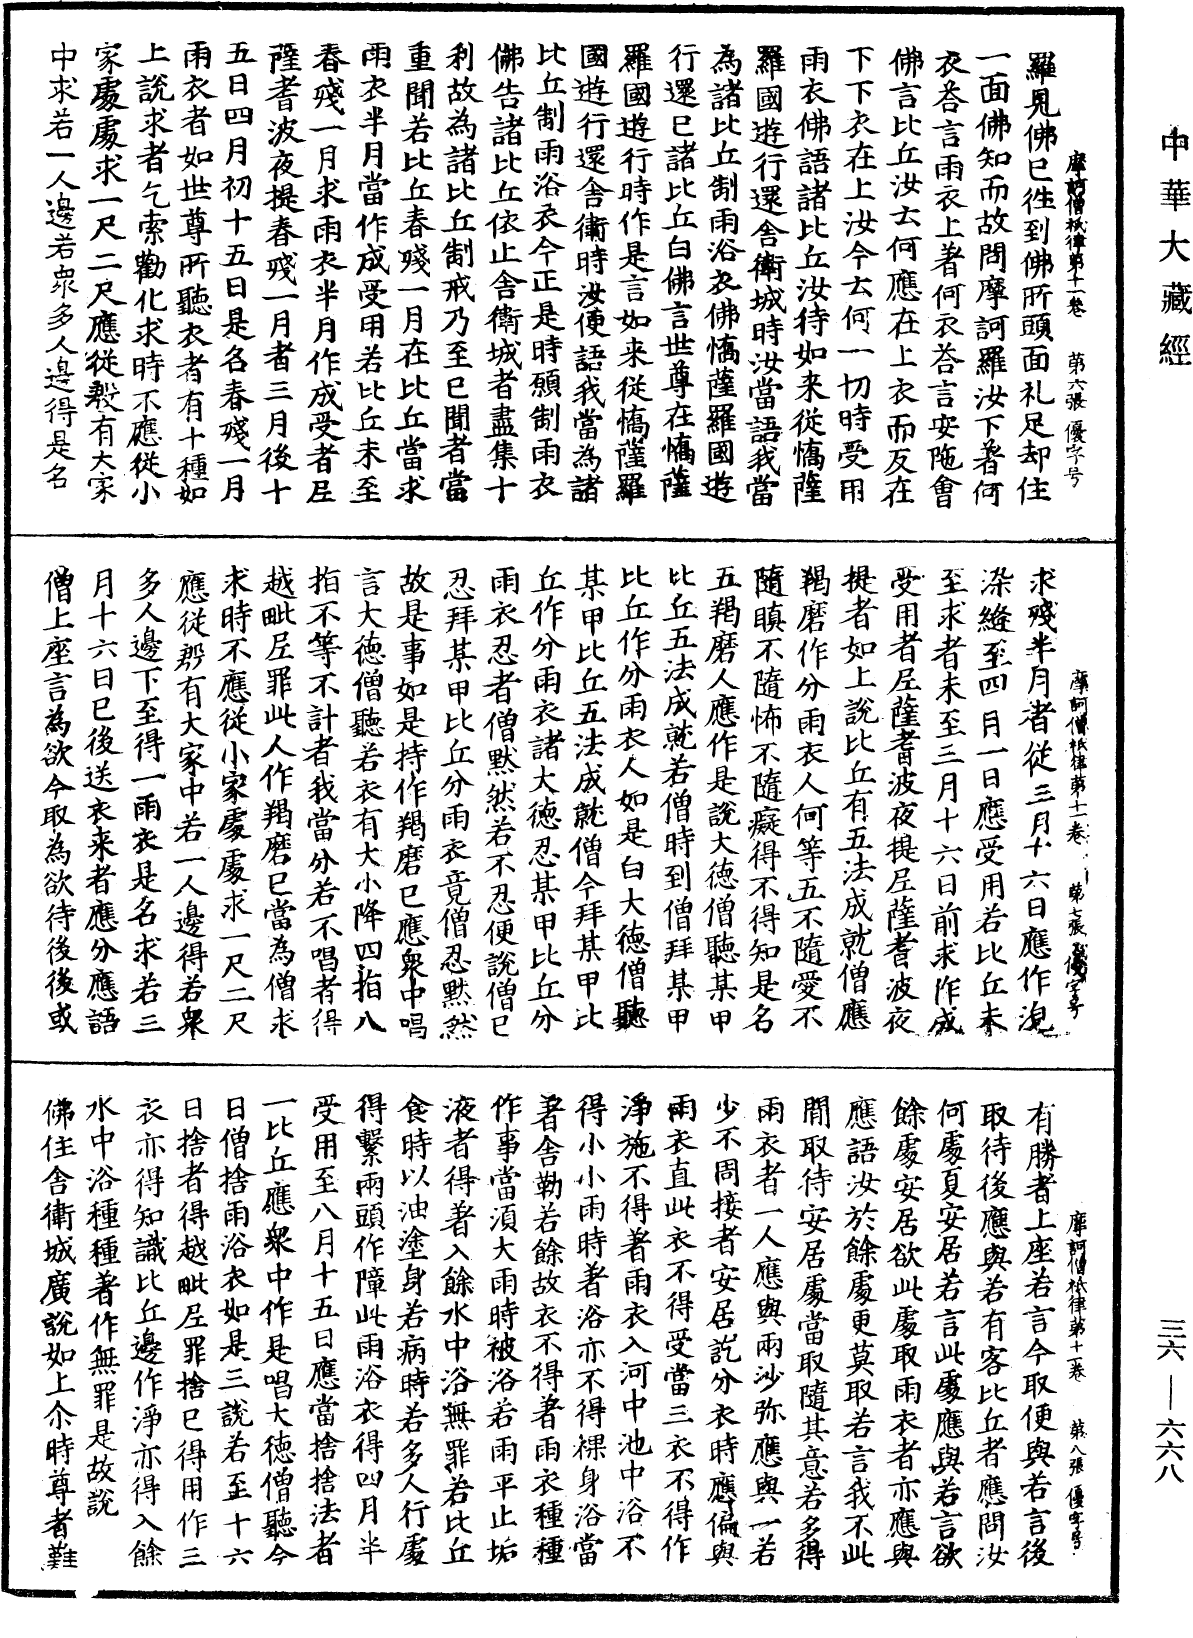 中華大藏經
摩訶僧祇律第十一卷　第六張　優字号
羅見佛已徃到佛所頭面礼足却住
一面佛知而故問摩訶羅汝下著何
衣荅言雨衣上著何衣荅言安陁會
佛言比丘汝云何應在上衣而反在
下下衣在上汝今云何一切時受用
雨衣佛語諸比丘汝待如来從憍薩
羅國遊行還舍衛城時汝當語我當
為諸比丘制雨浴衣佛憍薩羅國遊
行還已諸比丘白佛言世尊在憍薩
羅國遊行時作是言如来從憍薩羅
國遊行還舍衛時汝便語我當為諸
比丘制雨浴衣今正是時願制雨衣
佛告諸比丘依止舍衛城者盡集十
利故為諸比丘制戒乃至已聞者當
重聞若比丘春殘一月在比丘當求
雨衣半月當作成受用若比丘未至
春殘一月求雨衣半月作成受者𡰱
薩耆波夜提春殘一月者三月後十
五日四月初十五日是名春殘一月
雨衣者如世尊所聽衣者有十種如
上說求者乞索勸化求時不應從小
家處處求一尺二尺應從教有大家
中求若一人邊若衆多人邊得是名
摩訶僧祇律第十一卷　第七張　優字号
求殘半月者從三月十六日應作浣
染縫至四月一日應受用若比丘未
至求者未至三月十六日前求作成
受用者𡰱薩耆波夜提𡰱薩耆波夜
提者如上說比丘有五法成就僧應
羯磨作分雨衣人何等五不隨愛不
隨瞋不隨怖不隨癡得不得知是名
五羯磨人應作是說大德僧聽某甲
比丘五法成就若僧時到僧拜某甲
比丘作分雨衣人如是白大德僧聽
某甲比丘五法成就僧今拜某甲比
丘作分雨衣諸大德忍某甲比丘分
雨衣忍者僧默然若不忍便說僧已
忍拜某甲比丘分雨衣竟僧忍默然
故是事如是持作羯磨已應衆中唱
言大德僧聽若衣有大小降四指八
指不等不計者我當分若不唱者得
越毗𡰱罪此人作羯磨已當為僧求
求時不應從小家處處求一尺二尺
應從郡有大家中若一人邊得若衆
多人邊下至得一雨衣是名求若三
月十六日已後送衣来者應分應語
僧上座言為欲今取為欲待後後或
摩訶僧祇律第十一卷　第八張　優字号
有勝者上座若言今取便與若言後
取待後應與若有客比丘者應問汝
何處夏安居若言此處應與若言欲
餘處安居欲此處取雨衣者亦應與
應語汝於餘處更莫取若言我不此
間取待安居處當取隨其意若多得
雨衣者一人應與兩沙弥應與一若
少不周接者安居訖分衣時應偏與
雨衣直此衣不得受當三衣不得作
淨施不得著雨衣入河中池中浴不
得小小雨時著浴亦不得裸身浴當
著舍勒若餘故衣不得著雨衣種種
作事當須大雨時被浴若雨平止垢
液者得著入餘水中浴無罪若比丘
食時以油塗身若病時若多人行處
得繫兩頭作障此雨浴衣得四月半
受用至八月十五日應當捨捨法者
一比丘應衆中作是唱大德僧聽今
日僧捨雨浴衣如是三說若至十六
日捨者得越毗𡰱罪捨已得用作三
衣亦得知識比丘邊作淨亦得入餘
水中浴種種著作無罪是故說
佛住舍衛城廣說如上尒時尊者難
三六—六六八